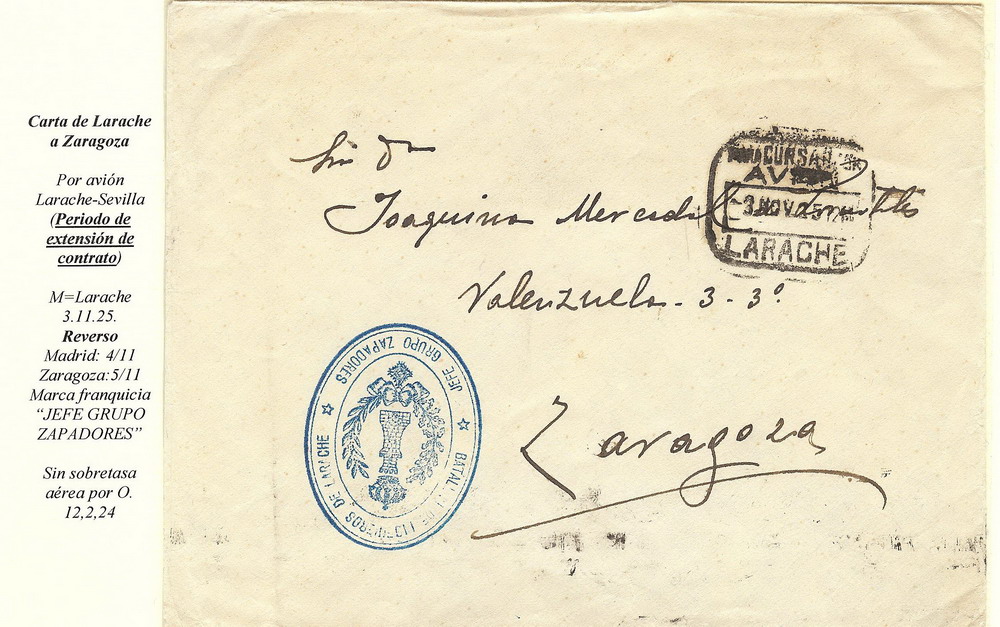 Carta de Larache
a Zaragoza
Por avión
Larache-Sevilla
(Periodo de
extensión de
contrato)
M=Larache
3.11.25.
Reverso
Madrid: 4/11
Zaragoza:5/11
Marca franquicia
“JEFE GRUPO
ZAPADORES”
Sin sobretasa
aérea por O.
12,2,24
Joaquina Mercadal
Valenzuela - 3 - 3º
Zaragoza
3 NOV 25
LARACHE
JEFE GRUPO ZAPADORES
DE LARACHE